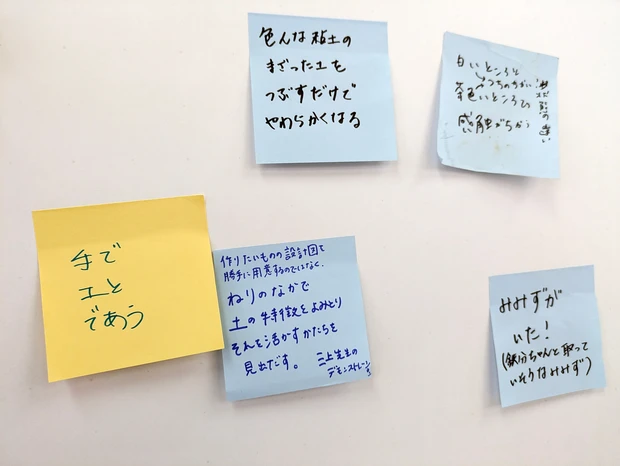 色んな粘土の
まざった土を
つぶすだけで
やわらかくなる
白いところと
茶色いところで
感触がちがう
つちのちがい!
手で
土と
であう
作りたいものの設計図を
勝手に用意するのではなく、
ねりのなかで
土の特徴をよみとり
それを活かすかたちを
見出だす。
三上先生の
デモンストレーション
みみずが
いた!
(鉄分ちゃんと取って
いそうなみみず)